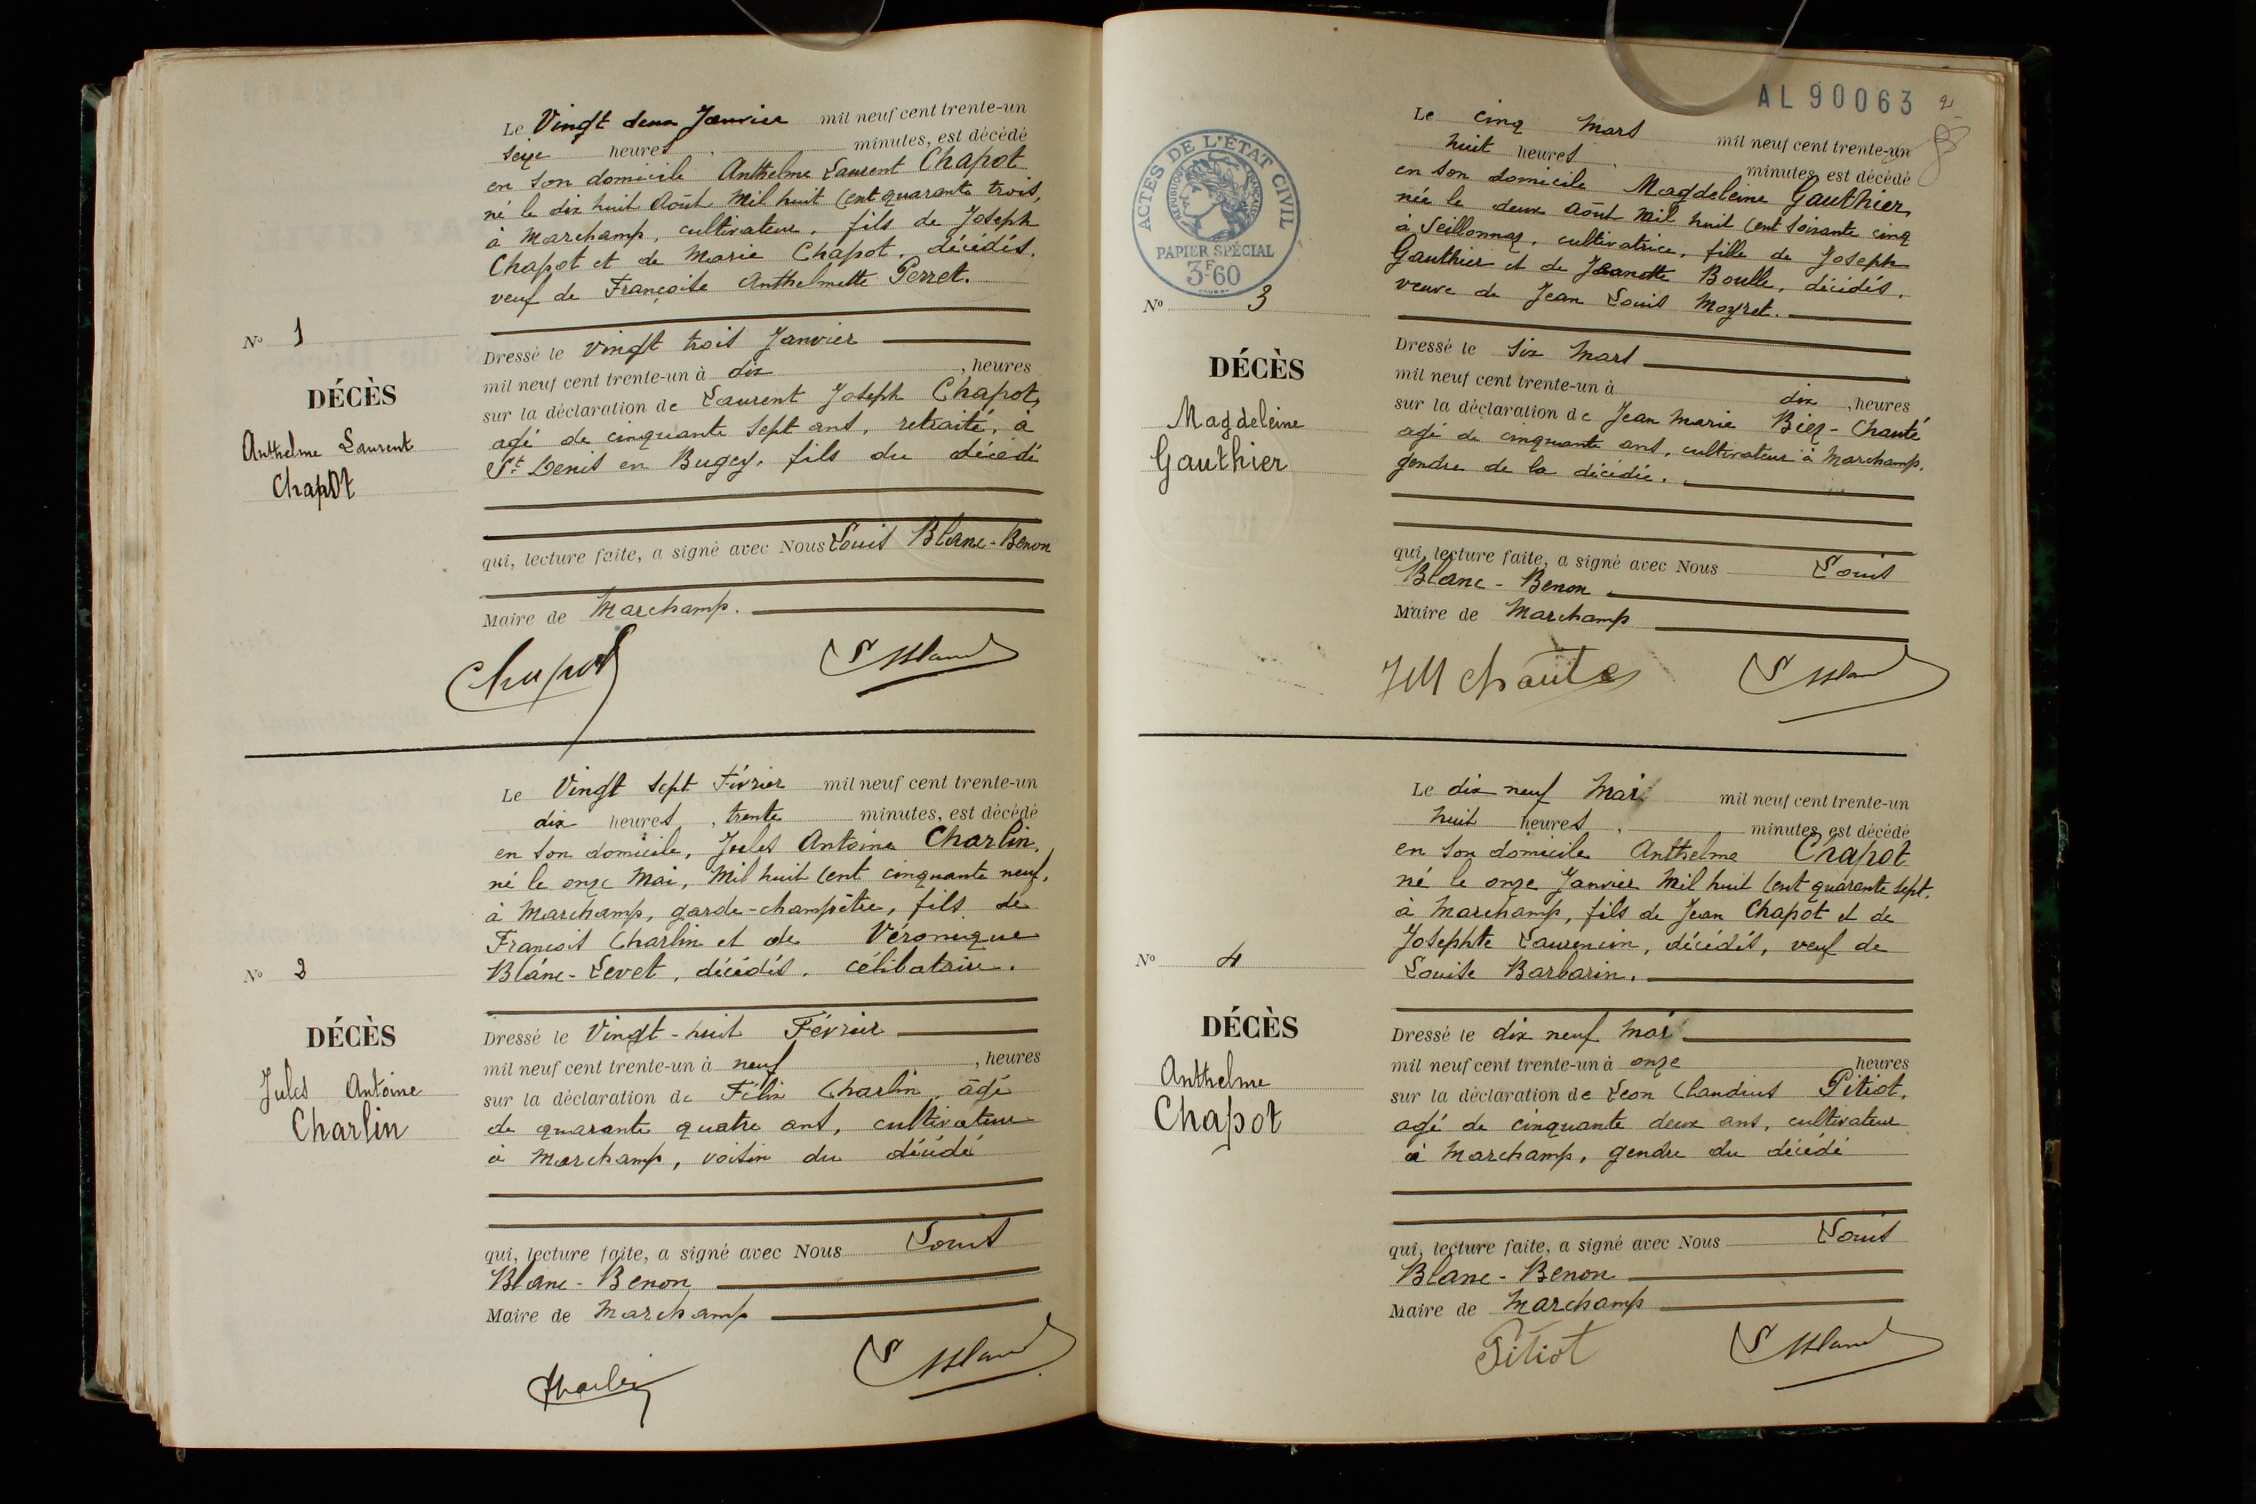 Le Vingt deux Janvier mil neuf cent trente-un
seize heures, minutes, est décédé
en son domicile Anthelme Laurent Chapot
né le dix huit Août Mil huit Cent quarante trois,
à Marchamp, cultivateur, fils de Joseph
Chapot et de Marie Chapot, décédés.
veuf de Françoise Anthelmette Perret.
No 1
DÉCÈS
Anthelme Laurent
Chapot
Dressé le Vingt trois Janvier
mil neuf cent trente-un à dix, heures
sur la déclaration de Laurent Joseph Chapot,
agé de cinquante sept ans, retraité, à
St Denis en Bugey, fils du décédé
qui, lecture faite, a signé avec Nous Louis Blanc-Benon
Maire de Marchamp.
Chapot
L Blanc
Le Vingt sept Février mil neuf cent trente-un
dix heures, trente minutes, est décédé
en son domicile, Jules Antoine Charlin,
né le onze Mai, Mil huit Cent cinquante neuf,
à Marchamp, garde-champêtre, fils de
François Charlin et de Véronique
Blanc-Levet, décédés. célibataire.
No 2
DÉCÈS
Jules Antoine
Charlin
Dressé le Vingt-huit Février
mil neuf cent trente-un à neuf, heures
sur la déclaration de Félix Charlin, âgé
de quarante quatre ans, cultivateur
à Marchamp, voisin du décédé
qui, lecture faite, a signé avec Nous Louis
Blanc-Benon
Maire de Marchamp
Charlin
L Blanc
AL 90063
2
ACTES DE L'ÉTAT CIVIL
RÉPUBLIQUE FRANÇAISE
PAPIER SPÉCIAL
3F60
Le cinq Mars mil neuf cent trente-un
huit heures, minutes, est décédé
en son domicile Magdeleine Gauthier,
née le deux Août Mil huit Cent soixante cinq
à Seillonnaz, cultivatrice, fille de Joseph
Gauthier et de Jeanette Boulle, décédés,
veuve de Jean Louis Moyret.
No 3
DÉCÈS
Magdeleine
Gauthier
Dressé le Six Mars
mil neuf cent trente-un à dix, heures
sur la déclaration de Jean Marie Biez-Chanté
agé de cinquante ans, cultivateur à Marchamp,
gendre de la décédée.
qui, lecture faite, a signé avec Nous Louis
Blanc-Benon
Maire de Marchamp
JM Chanté
L Blanc
Le dix neuf Mai mil neuf cent trente-un
huit heures, minutes, est décédé
en son domicile Anthelme Chapot
né le onze Janvier Mil huit Cent quarante sept.
à Marchamp, fils de Jean Chapot et de
Josephte Laurencin, décédés, veuf de
Louise Barbarin.
No 4
DÉCÈS
Anthelme
Chapot
Dressé le dix neuf Mai
mil neuf cent trente-un à onze heures
sur la déclaration de Leon Claudius Pitiot,
agé de cinquante deux ans, cultivateur
à Marchamp, gendre du décédé
qui, lecture faite, a signé avec Nous Louis
Blanc-Benon
Maire de Marchamp
Pitiot
L Blanc